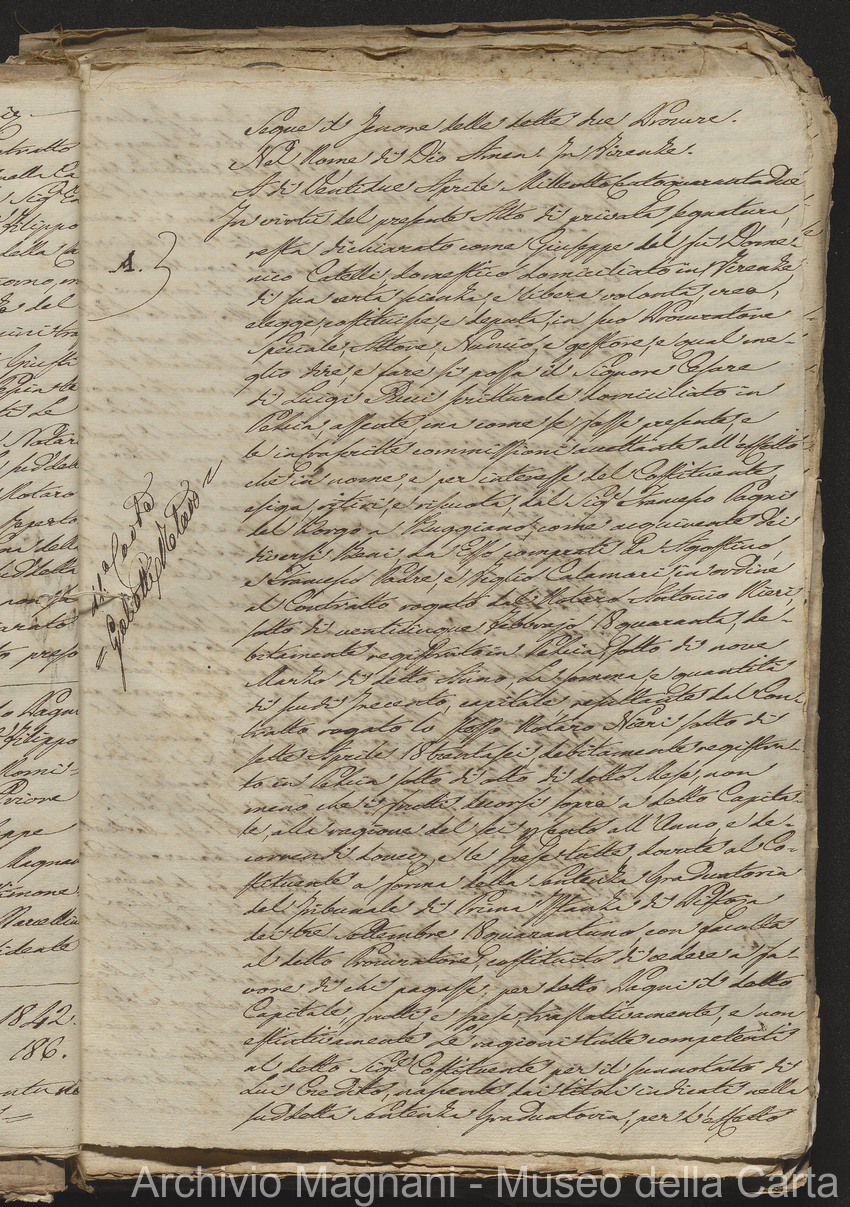 Segue il Tenore delle dette due Procure.
Nel Nome di Dio Amen. In Firenze.
A di Ventidue Aprile Milleottocentoquarantadue
In virtù del presente Atto di privata segnatura,
resta dichiarato come Giuseppe del fù Dome-
nico Catelli, domestico domiciliato in Firenze
di sua certa scienza, e libera volontà, crea,
elegge, costituisce, e deputa, in suo Procuratore
Speciale, Attore, Nunzio, e gestore, e qual me-
glio dire, e fare si possa il Signore Cesare
di Luigi scritturale domiciliato in
Pescia, assente ma come se fosse presente, e
le infrascritte commissioni accettante all'effetto
che in nome, e per interesse del Costituente,
esiga, ritiri, e riscuota, dal Sigr Francesco Pagni
del Borgo a Buggiano, come acquirente dei
diversi Beni da Esso comprati da Agostino,
e Francesco Padre, e Figlio Calamari, in ordine
al Contratto rogato dal Notaro Antonio Nieri,
sotto dì venticinque Febbrajo 18quaranta, de-
bitamente registrato in Pescia sotto dì nove
Marzo di detto Anno, La somma, e quantità
di scudi Trecento, capitale resultante dal Con-
tratto rogato lo stesso Notaro Nieri sotto dì
sette Aprile 18trentasei debitamente registra-
to in Pescia sotto dì otto di detto Mese, non
meno che i frutti decorsi sopra a detto Capita-
le, alla ragione del sei per cento all'Anno, e de-
correndi e le spese tutte dovute al Co-
stituente a forma della Sentenza Graduatoria
del Tribunale di Prima Istanza di Pistoja
de' tre Settembre 18quarantuno, con facoltà
al detto Procuratore, costituito di cedere a fa-
vore di chi pagasse per detto Pagni il detto
Capitale, frutti, e spese, traslativamente, e non
estintivamente Le ragioni tutte competenti
al detto Sigr Costituente per il sunnotato di
Lui Credito, nascente dai titoli indicati nella
suddetta Sentenza Graduatoria, per l'effetto
A.
Galeotti Notaro
1842.
186.